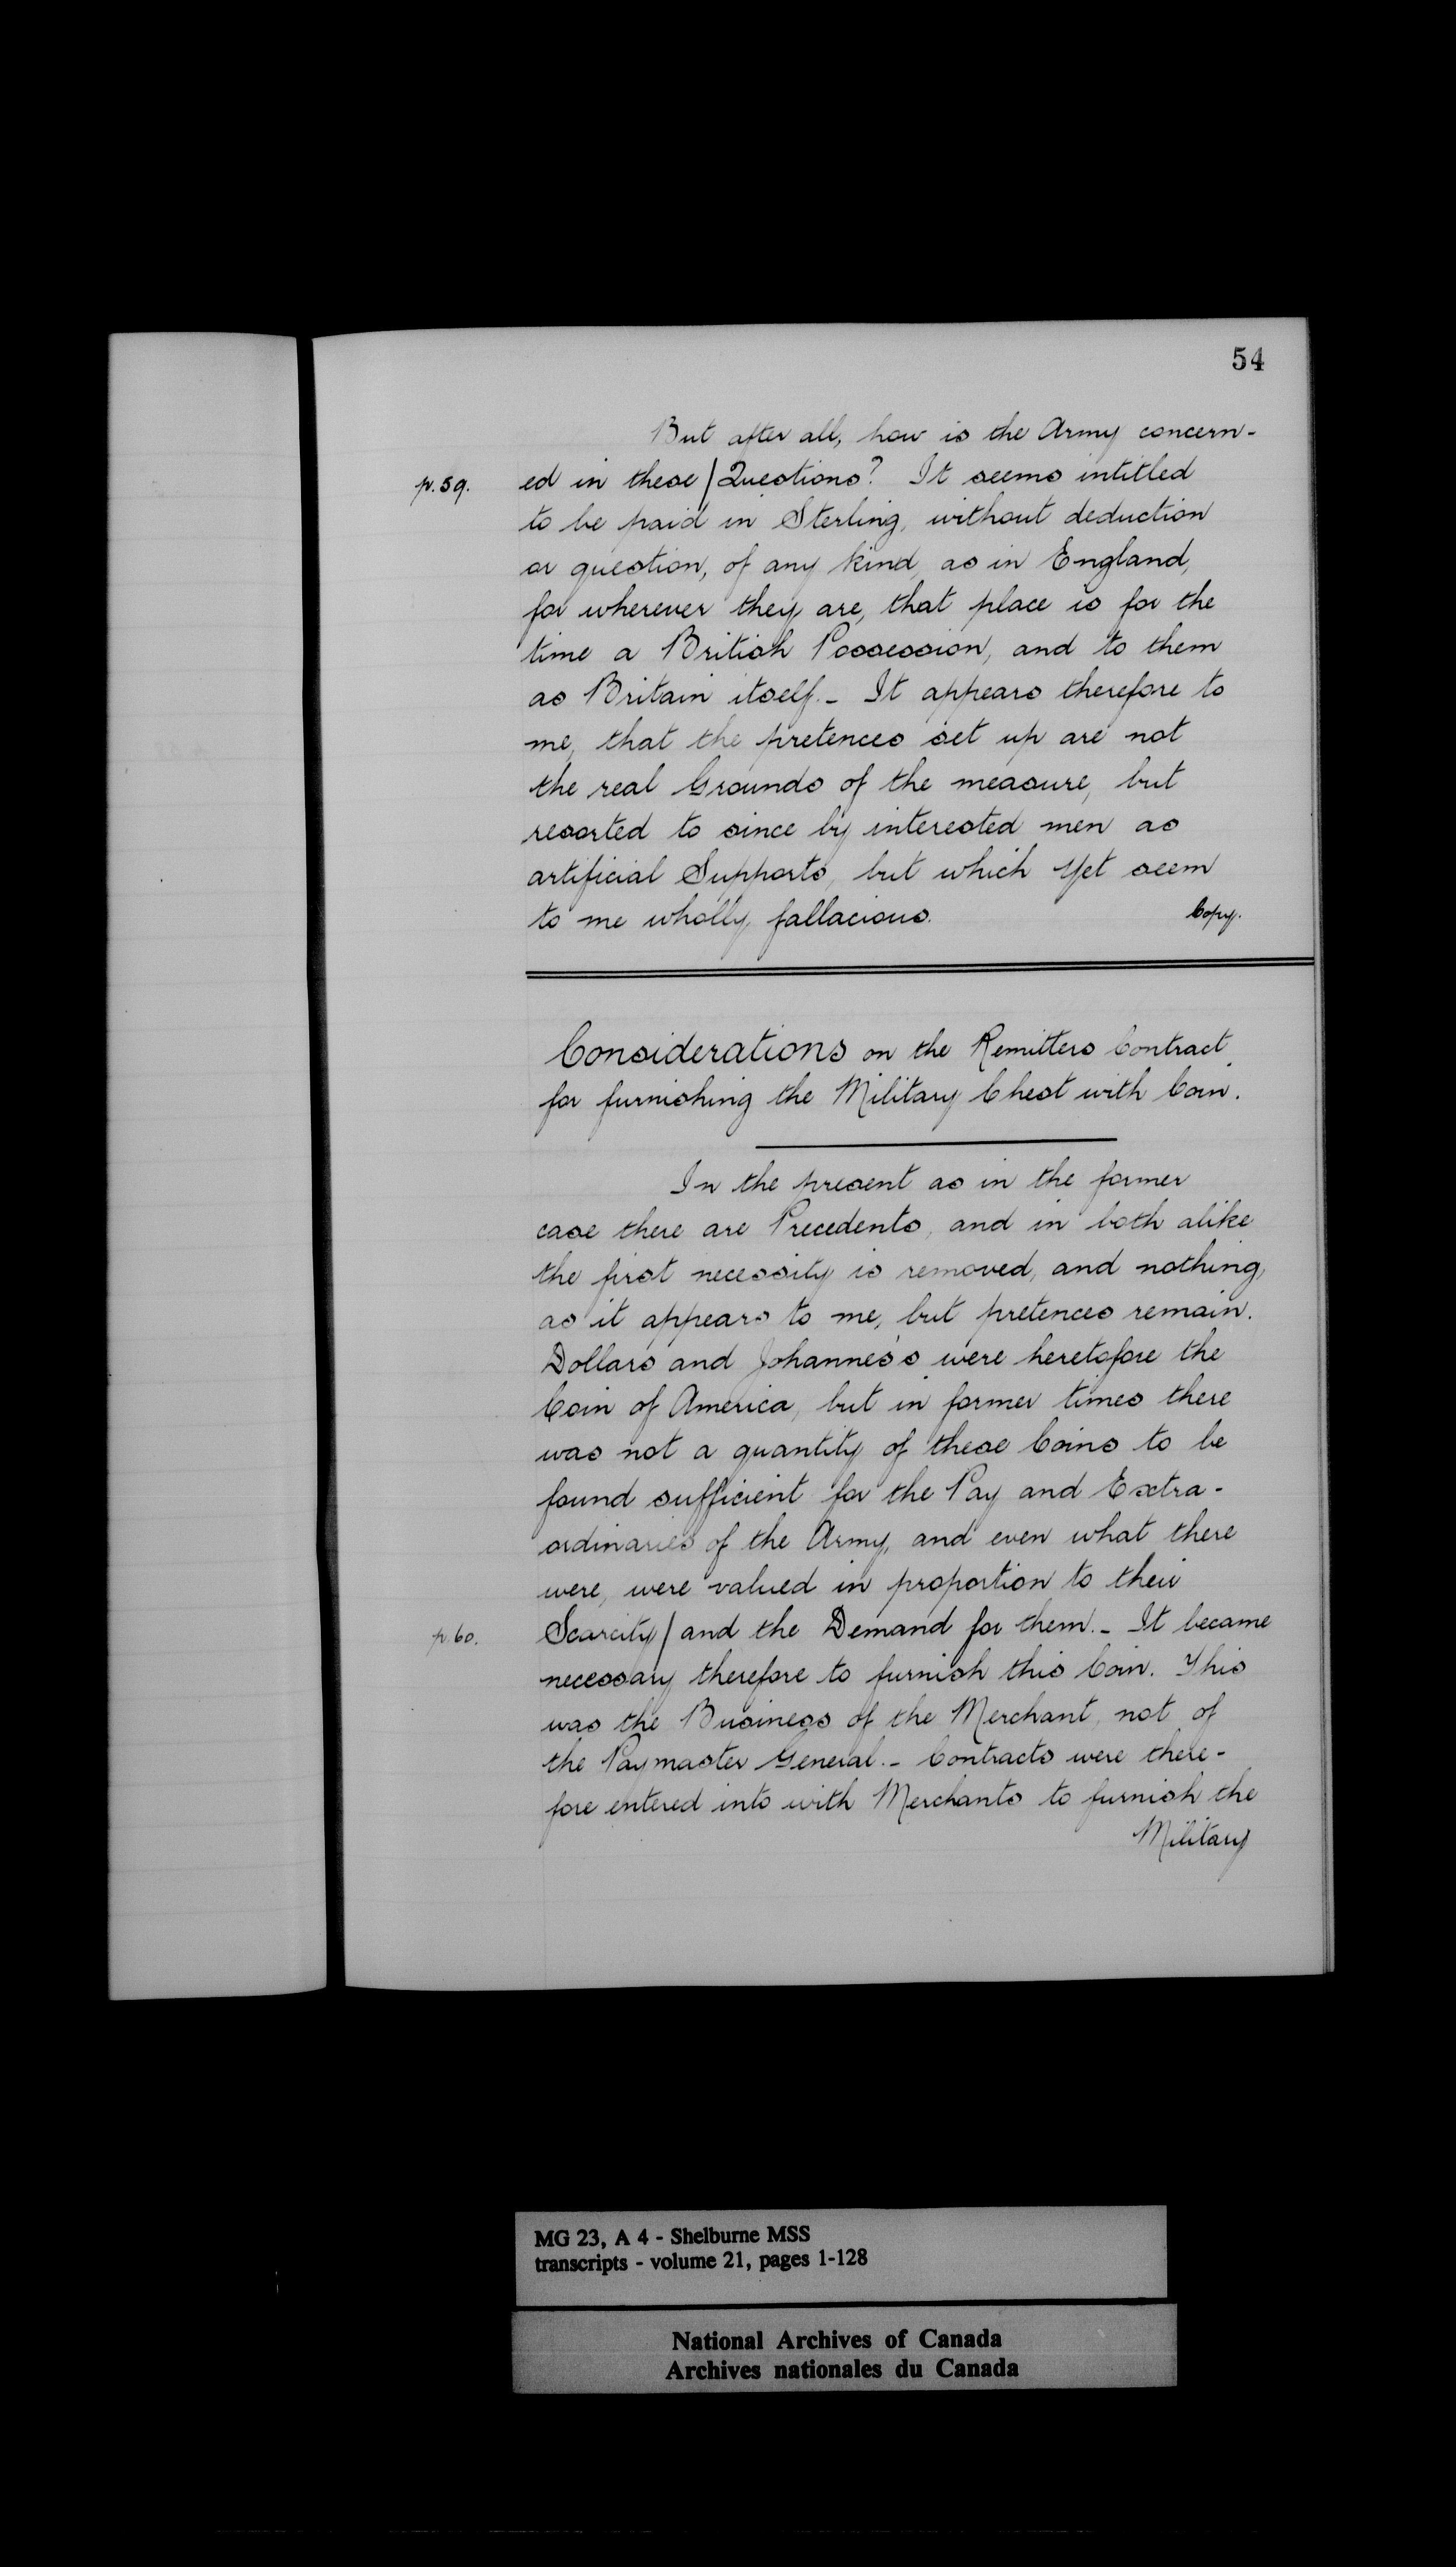 54
But after all, how is the Army concern-
p. 59. ed in these / Questions? It seems intitled
to be paid in Sterling, without deduction
or question, of any kind, as in England,
for wherever they are, that place is for the
time a British Possession, and to them
as Britain itself. - It appears therefore to
me, that the pretences set up are not
the real Grounds of the measure, but
resorted to since by interested men as
artificial Supports, but which yet seem
to me wholly fallacious. Copy.
Considerations on the Remitters Contract
for furnishing the Military Chest with Coin.
In the present as in the former
case there are Precedents, and in both alike
the first necessity is removed, and nothing,
as it appears to me, but pretences remain.
Dollars and Johannes's were heretofore the
Coin of America, but in former times there
was not a quantity of these Coins to be
found sufficient for the Pay and Extra-
ordinaries of the Army, and even what there
were, were valued in proportion to their
p. 60. Scarcity / and the Demand for them. - It became
necessary therefore to furnish this Coin. This
was the Business of the Merchant, not of
the Paymaster General. - Contracts were there-
fore entered into with Merchants to furnish the
Military
MG 23, A 4 - Shelburne MSS
transcripts - volume 21, pages 1-128
National Archives of Canada
Archives nationales du Canada